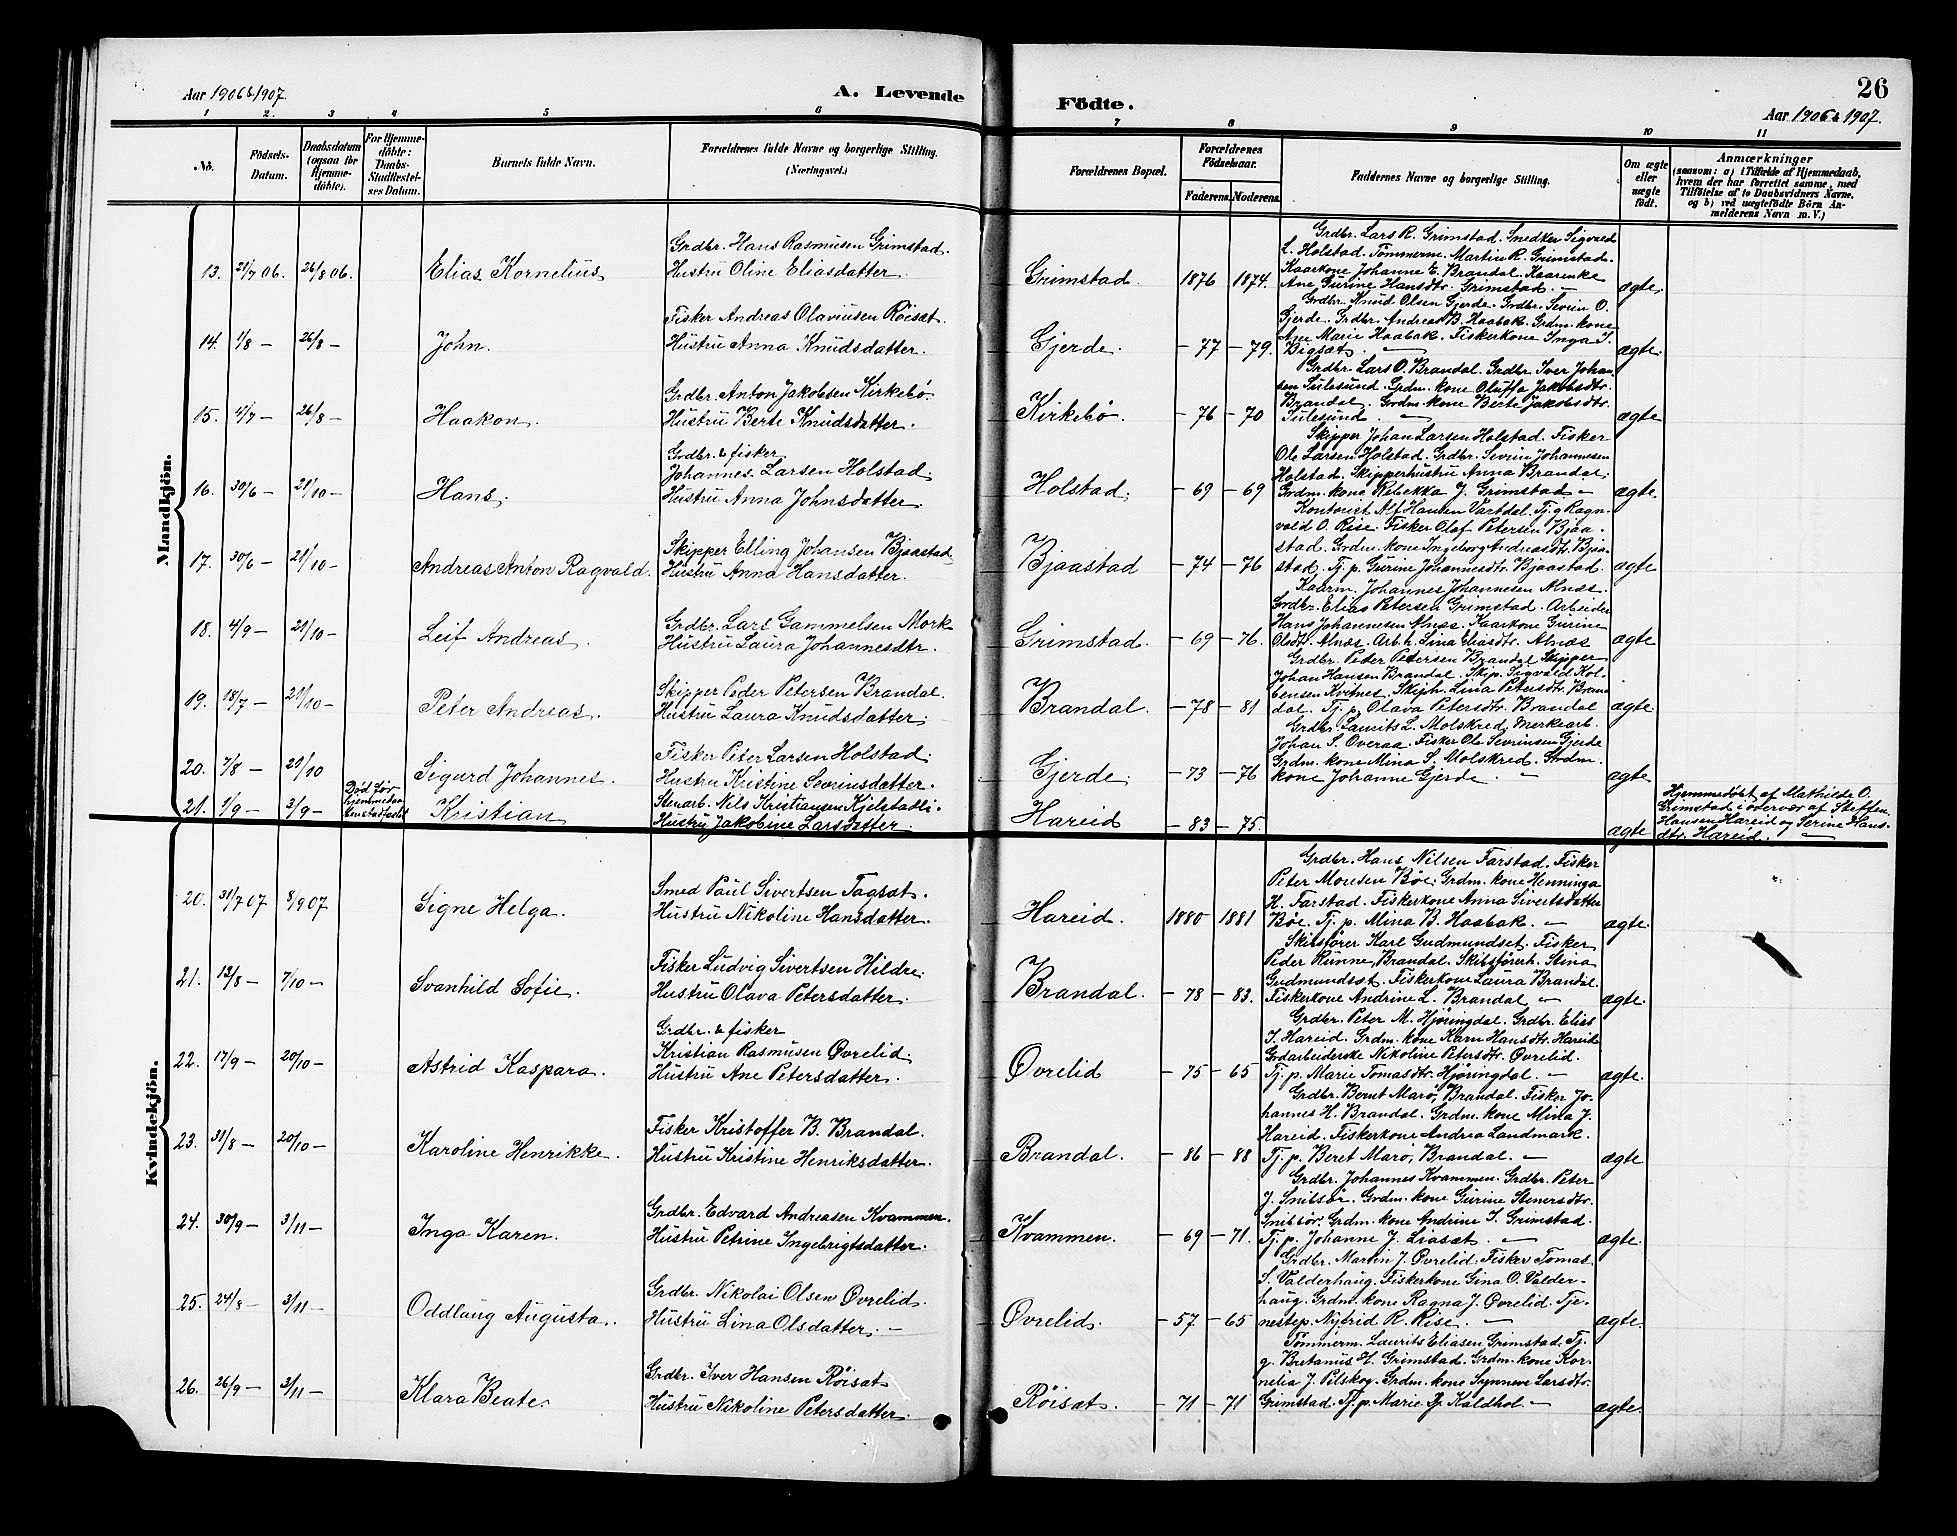 26
Aar 1906 & 1907.
A. Levende
Födte.
Aar 1906 & 1907.
1 2. 3 4 5 6 7 8 9 10 11
No.
Födsels-
Datum.
Daabsdatum
(ogsaa for
Hjemme-
döbte).
For Hjemme-
döbte:
Daabs-
Stadfæstel-
ses Datum.
Barnets fulde Navn.
Forældrenes fulde Navne og borgerlige Stilling.
(Næringsvei.)
Forældrenes Bopæl.
Forældrenes
Födselsaar.
Faderens. Moderens.
Faddernes Navne og borgerlige Stilling.
Om ægte
eller
uægte
født.
Anmærkninger
(saasom: a) i Tilfælde af Hjemmedaab,
hvem der har forrettet samme, med
Tilföielse af to Daabsvidners Navne,
og b) ved uægtefödte Börn An-
melderens Navn m. V.)
Mandkjön.
13. 21/7 06. 26/8 06. Elias Kornelius
Grdbr. Hans Rasmusen Grimstad.
Hustru Oline Eliasdatter.
Grimstad. 1876 1874.
Grdbr. Lars R. Grimstad. Snedker Sigvald
L. Holstad. Tömmerm. Martin R. Grimstad.
Kaarkone Johanne E. Brandal. Kaarenke
Ane Gurine Hansdtr. Grimstad. —
ægte.
14. 1/8 — 26/8 — John.
Fisker Andreas Olaviusen Röisæt.
Hustru Anna Knudsdatter.
Gjerde. — 77 — 79.
Grdbr. Knud Olsen Gjerde. Grdbr. Severin O.
Gjerde. Grdbr. Andreas B. Haabak. Grdm. kone
Ane Marie Haabak. Fiskerkone Inga I.
Bigsæt. —
ægte.
15. 4/7 — 26/8 — Haakon.
Grdbr. Anton Jakobsen Kirkebö.
Hustru Berte Knudsdatter.
Kirkebö. — 76 — 70
Grdbr. Lars O. Brandal. Grdbr. Iver Johan-
sen Sulesund. Grdm. kone Oluffa Jakobsdtr.
Brandal. Grdm. kone Berte Jakobsdtr.
Sulesund —
ægte
16. 30/6 — 21/10 — Hans.
Grdbr. & fisker
Johannes Larsen Holstad.
Hustru Anna Johnsdatter
Holstad. — 69 — 69
Skipper Johan Larsen Holstad. Fisker
Ole Larsen Holstad. Grdbr. Severin Johannesen
Holstad. Skipperhustru Anna Brandal.
Grdm. kone Rebekka J. Grimstad —
ægte.
17. 30/6 — 21/10 — Andreas Anton Ragvald.
Skipper Elling Johansen Bjaastad
Hustru Anna Hansdatter.
Bjaastad — 74 — 76
Kontorist Alf Hansen Vartdal. Tj. g. Ragn-
vald O. Rise. Fisker Olaf Petersen Bjaa-
stad. Grdm. kone Ingeborg Andreasdtr. Bjaa-
stad. Tj. p. Gurine Johannesdtr. Bjaastad.
ægte
18. 4/9 — 21/10 — Leif Andreas.
Grdbr. Lars Gammelsen Mork
Hustru Laura Johannesdtr.
Grimstad. — 69 — 76.
Kaarm. Johannes Johannesen Alnæs.
Grdbr. Elias Petersen Grimstad. Arbeider
Hans Johannesen Alnæs. Kaarkone Gurine
Olsdtr. Alnæs. Arb. h. Lina Eliasdtr. Alnæs
ægte
19. 18/7 — 21/10 — Peter Andreas.
Skipper Peder Petersen Brandal.
Hustru Laura Knudsdatter.
Brandal. — 78 — 81
Grdbr. Peter Petersen Brandal Skipper
Johan Hansen Brandal. Skip. Sigvald Kol-
bensen Kvitnes. Skiph. Lina Petersdtr. Bran-
dal. Tj. p. Olava Petersdtr. Brandal
ægte.
20. 7/8 — 21/10 Sigurd Johannes.
Fisker Peter Larsen Holstad.
Hustru Kristine Severinsdatter.
Gjerde. — 73 — 76
Grdbr. Laurits L. Molskred, Merkearb.
Johan S. Overaa. Fisker Ole Severinsen Gjerde
Grdm. kone Mina S. Molskred. Strdm.
kone Johanne Gjerde. —
ægte
21. 1/9 — 3/9 — Död för
hjemmedaa-
ben stadfæstet
Kristian
Stenarb. Nils Kristiansen Kjelstadli.
Hustru Jakobine Larsdatter.
Hareid — 83 — 75.
ægte
Hjemmedöbt af Mathilde O.
Grimstad i övervær af Steffen
Hansen Hareid og Serine Hans-
dtr. Hareid. —
Kvindekjön.
20. 31/7 07 8/9 07 Signe Helga.
Smed Paul Sivertsen Tagsæt.
Hustru Nikoline Hansdatter.
Hareid. 1880 1881
Grdbr. Hans Nilsen Farstad. Fisker
Peter Monsen Böe. Grdm. kone Henninga
H. Farstad. Fiskerkone Anna Sivertsdatter
Böe. Tj. p. Mina B. Haabak. —
ægte.
21. 12/8 — 7/10 — Svanhild Sofie.
Fisker Ludvig Sivertsen Hildre.
Hustru Olava Petersdatter.
Brandal. — 78 — 83.
Skibsförer Karl Gudmundset. Fisker
Peder Runne, Brandal. Skibsförerh. Stina
Gudmundsæt. Fiskerkone Laura Brandal.
Fiskerkone Andrine L. Brandal —
ægte.
22. 17/9 — 20/10 — Astrid Kaspara.
Grdbr. & fisker
Kristian Rasmusen Øvrelid.
Hustru Ane Petersdatter.
Øvrelid — 75 — 65
Grdbr. Peter M. Hjöringdal. Grdbr. Elias
I. Hareid. Grdm. kone Karn Hansdtr. Hareid
Grdarbeiderske Nikoline Petersdtr. Øvrelid.
Tj. p. Marie Tomasdtr. Hjöringdal. —
ægte.
23. 31/8 — 20/10 — Karoline Henrikke.
Fisker Kristoffer B. Brandal.
Hustru Kristine Henriksdatter.
Brandal. — 86 — 88
Grdbr. Bernt Marö, Brandal. Fisker Jo-
hannes H. Brandal. Grdm. kone Mina J.
Hareid. Fiskerkone Andrea Landmark.
Tj. p. Beret Marö, Brandal. —
ægte
24. 30/9 — 3/11 — Inga Karen.
Grdbr. Edvard Andreasen Kvammen.
Hustru Petrine Ingebrigtsdatter.
Kvammen. — 69 — 71.
Grdbr. Johannes Kvammen. Grdbr. Peter
J. Snibsör. Grdm. kone Gurine Stenersdtr.
Snibsör. Grdm. kone Andrine I. Grimstad.
Tj. p. Johanne J. Liasæt. —
ægte.
25. 24/8 — 3/11 — Oddlaug Augusta.
Grdbr. Nikolai Olsen Øvrelid.
Hustru Lina Olsdatter. —
Øvrelid. — 57 — 65
Grdbr. Martin J. Øvrelid. Fisker Tomas
S. Valderhaug. Fiskerkone Gina O. Valder-
haug. Grdm. kone Ragna J. Øvrelid. Tje-
nestep. Nybrid R. Rise. —
ægte.
26. 26/9 — 3/11 — Klara Beate.
Grdbr. Iver Hansen Röisæt
Hustru Nikoline Petersdatter.
Röisæt. — 71 — 71
Tömmerm. Laurits Eliasen Grimstad. Tj.
g. Bretanus H. Grimstad. Grdm. kone Kor-
nelia J. Pilskog. Grdm. kone Synneve Larsdtr.
Grimstad. Tj. p. Marie P. Kaldhol —
ægte.